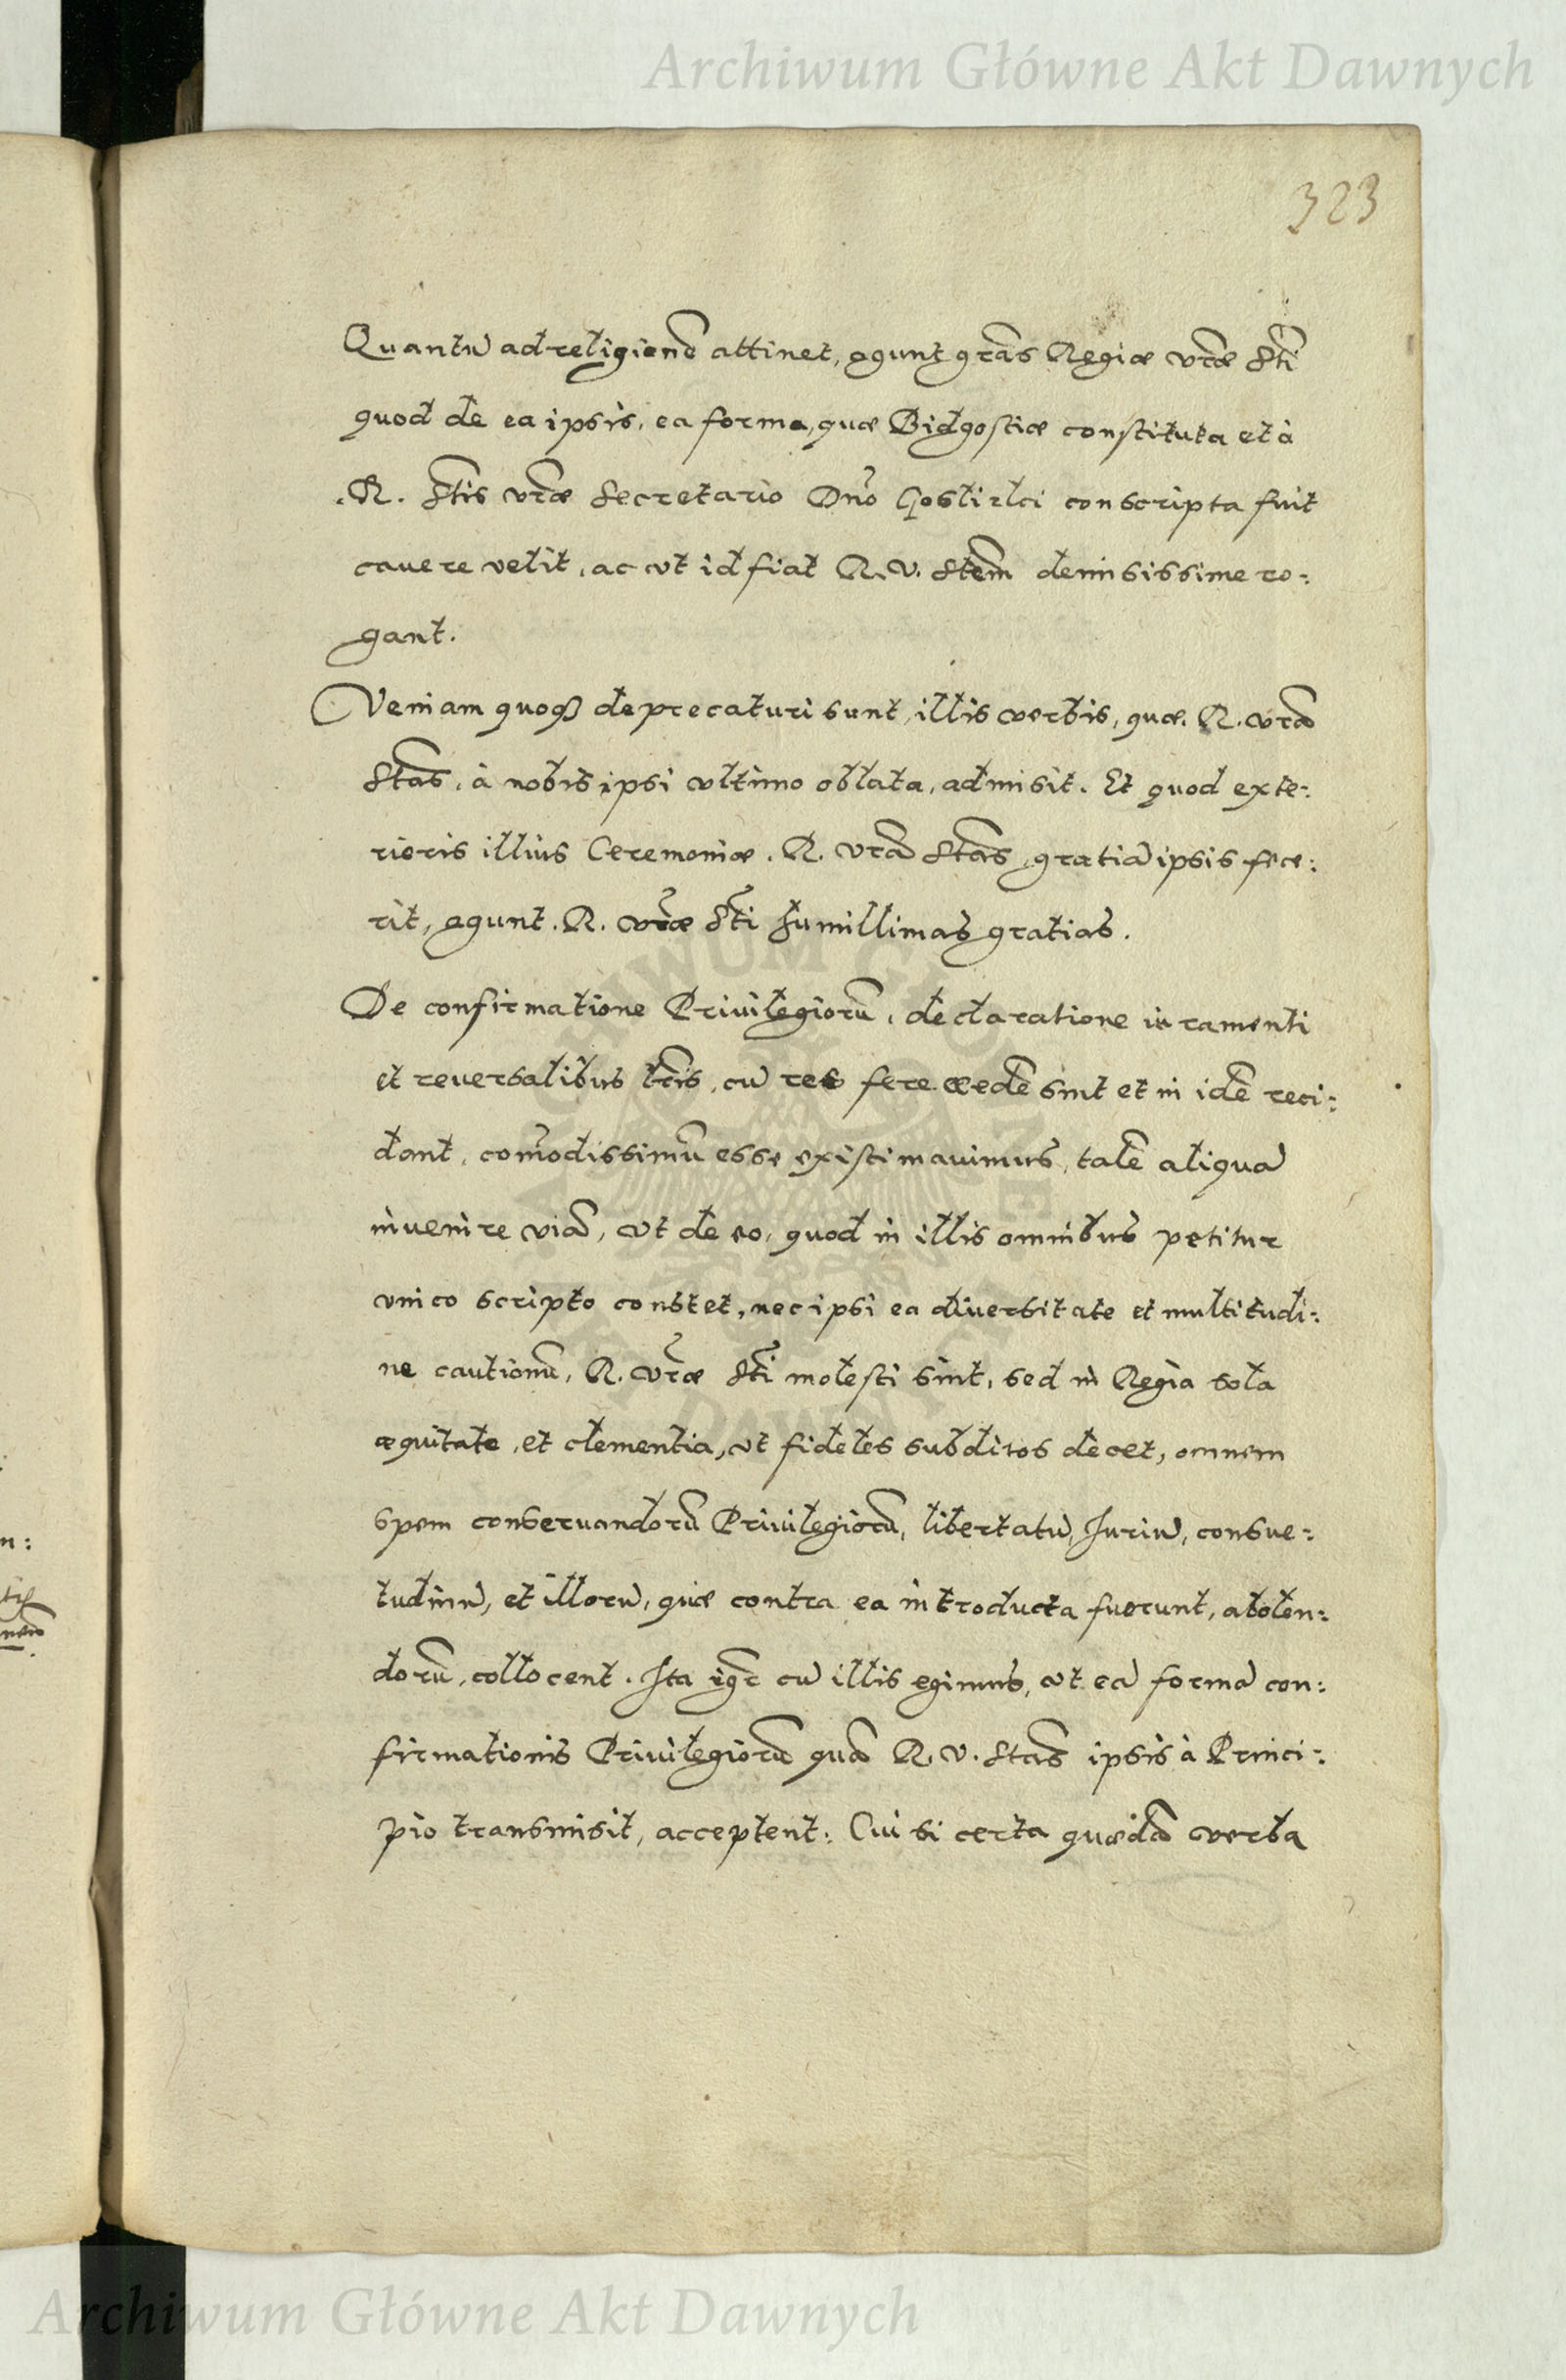 Archiwum Główne Akt Dawnych
323
Quantũ ad religionẽ attinet, agunt grãs Regiæ vrẽ Stĩ
quod de ea ipsis, ea forma, quæ Bidgostiæ constituta et à
R. Stĩs vrẽ Secretario Dño Goslizlci conscripta fuit
cauere velit, ac vt id fiat R. V. Stẽm demisissime ro:
gant.
Veniam quoqȝ deprecaturi sunt, illis verbis, quæ R. vrã
Stãs, à nobis ipsi vltimo oblata, admisit. Et quod exte:
rioris illius Ceremoniæ R. vrã Stãs gratiã ipsis fece:
rit, agunt R. vrẽ Stĩ humillimas gratias.
De confirmatione Priuilegiorũ, declaratione iuramenti
et reuersalibus lrĩs, cũ res fere eædẽ sint et in idẽ reci:
dant, com̃odissimũ esse existimauimus, talẽ aliquã
inuenire viã, vt de eo, quod in illis omnibus petitur
vnico scripto constet, nec ipsi ea diuersitate et multitudi:
ne cautionũ, R. vrẽ Stĩ molesti sint, sed in Regia sola
æquitate, et clementia, vt fideles subditos decet, omnem
spem conseruandorũ Priuilegiorũ, libertatũ, Juriũ, consue:
tudinũ, et illorũ, quæ contra ea introducta fuerunt, abolen:
dorũ, collocent. Ita igr̃ cũ illis egimus, vt eã formã con:
firmationis Priuilegiorũ quã R. V. Stãs ipsis à Princi:
pio transmisit, acceptent: Cui si certa quædã verba
Archiwum Główne Akt Dawnych